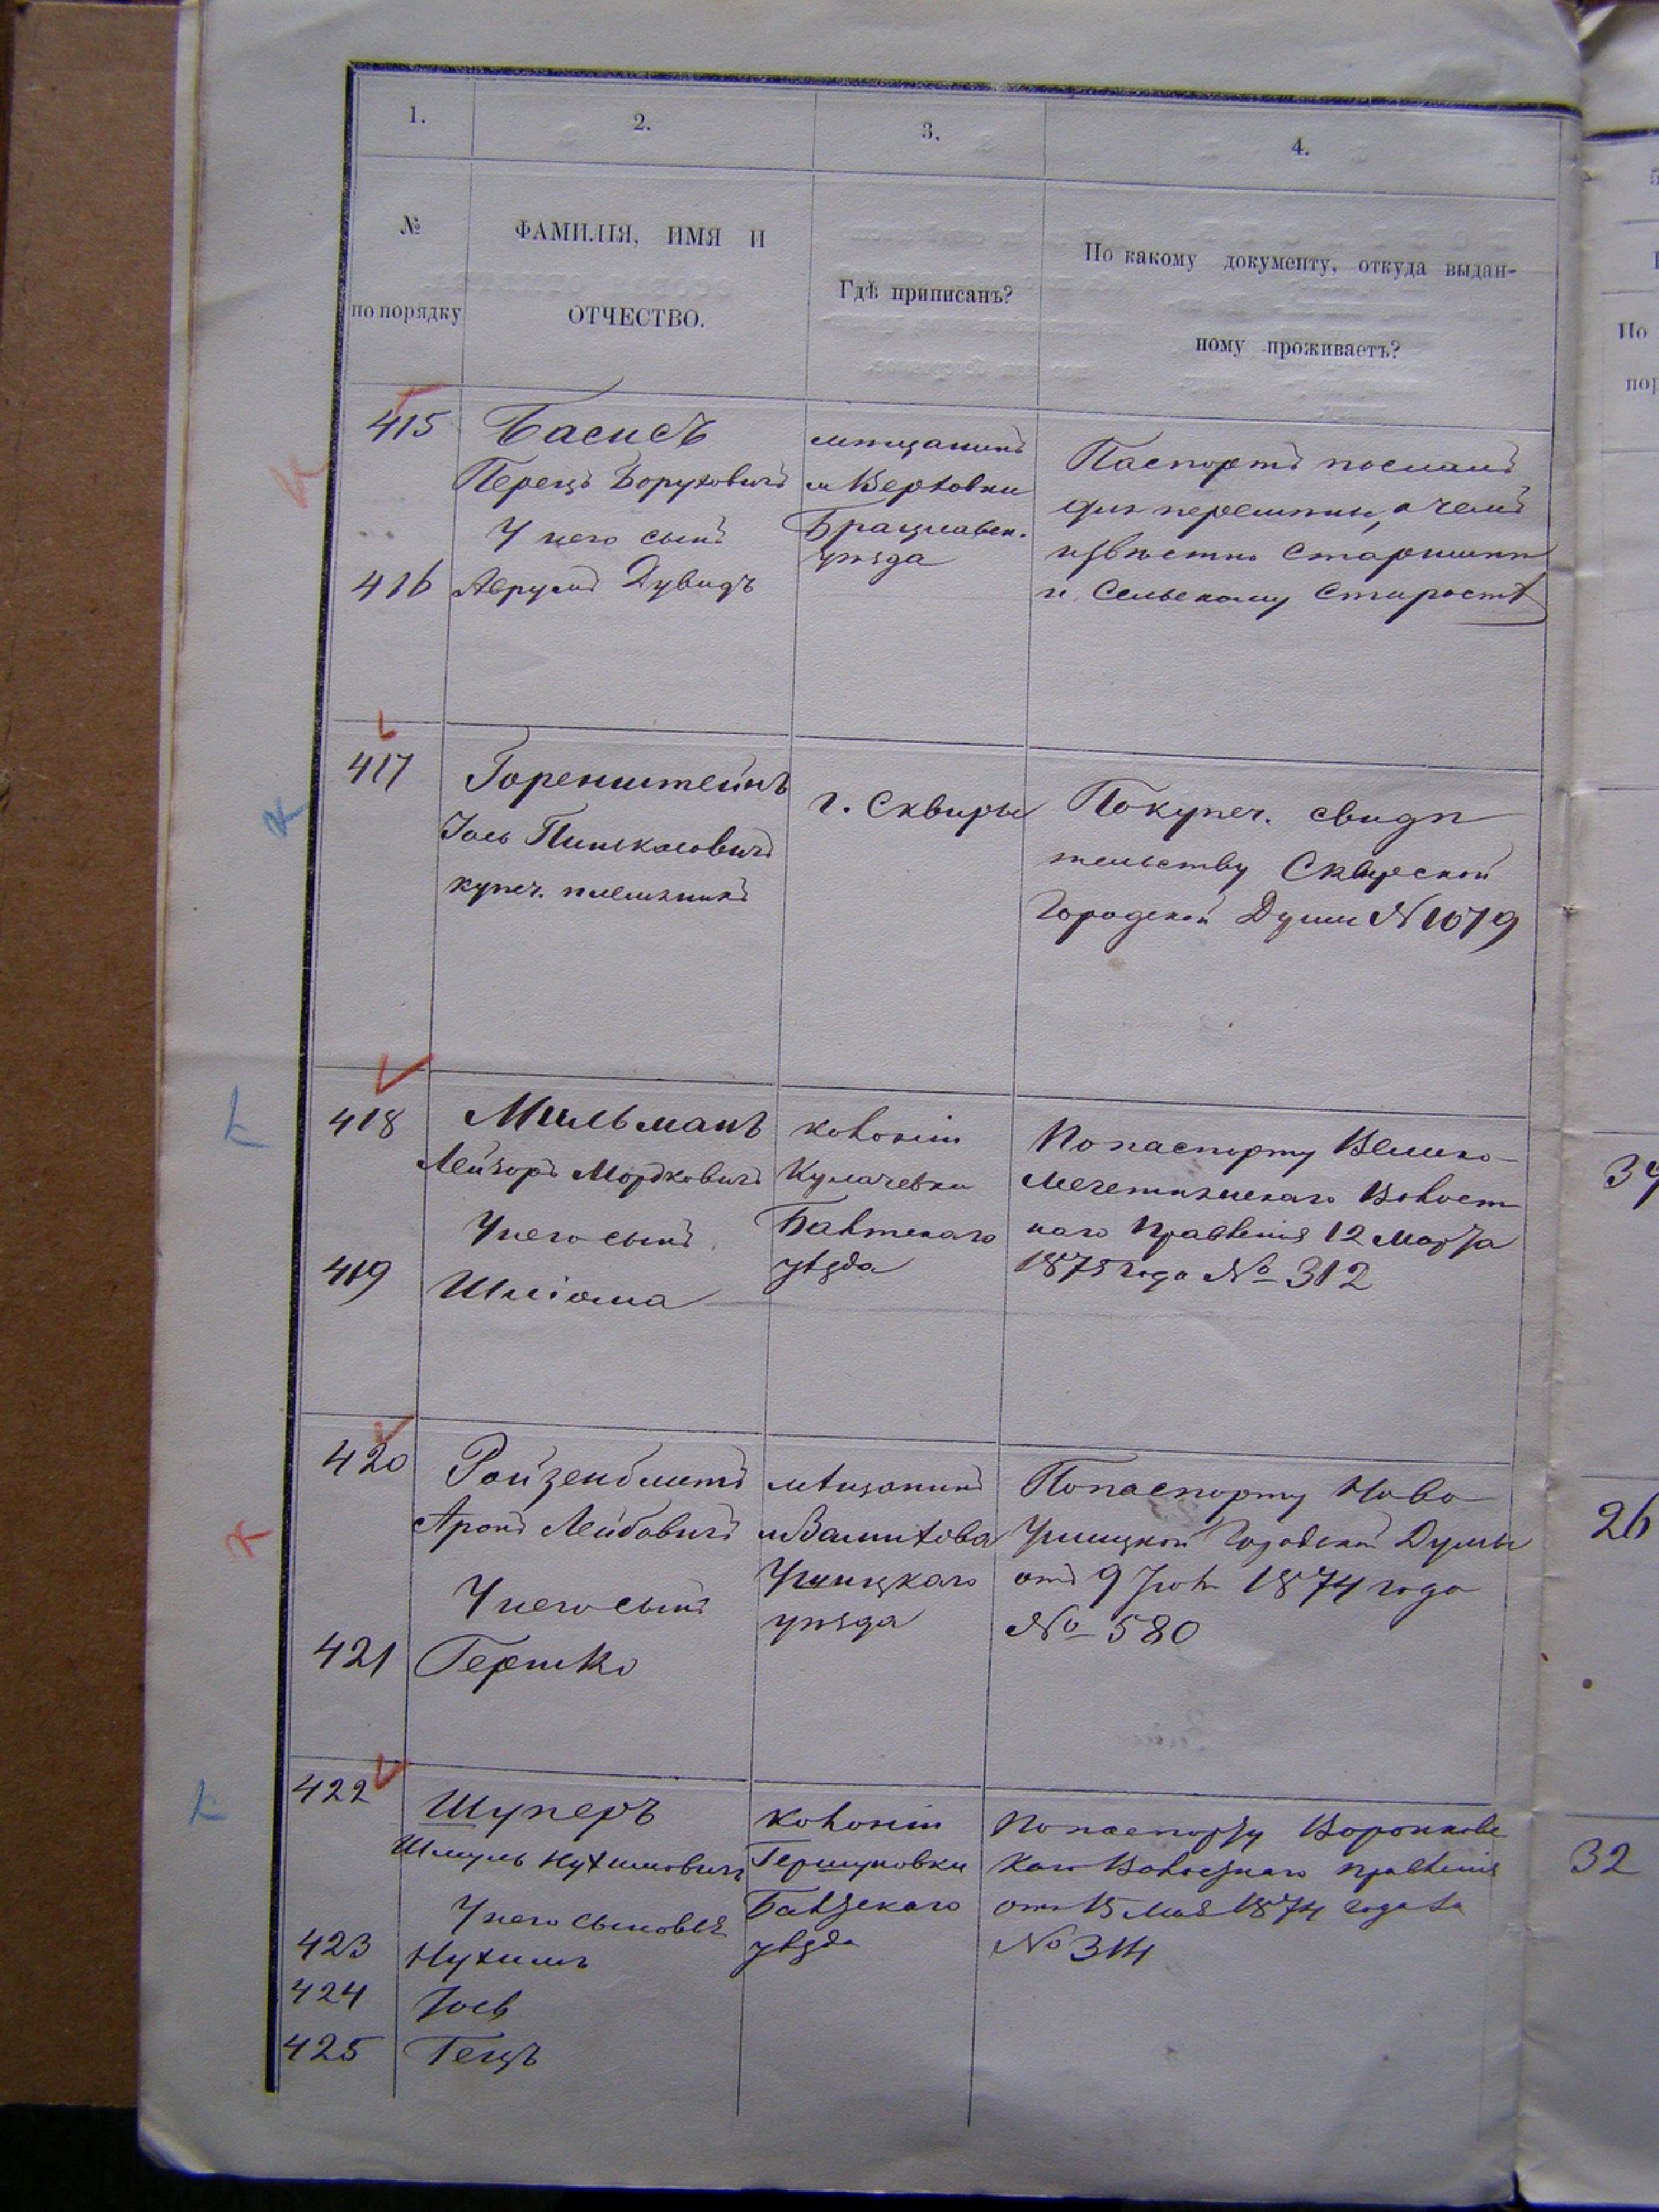 1.
2.
3.
4.
№
по порядку
ФАМИЛІЯ, ИМЯ И
ОТЧЕСТВО.
Гдѣ приписанъ?
По какому документу, откуда выдан-
ному проживаетъ?
415
Басисъ
Перецъ Боруховичъ
У него сынъ
416
Аврумъ Дувидъ
мѣщанинъ
м Верховки
Брацлавск.
уѣзда
Паспортъ посланъ
для перемѣны, о чемъ
извѣстно Старшинѣ
и Сельскому Старостѣ
417
Горенштейнъ
Іось Пинькасовичъ
купеч. племянникъ
г. Сквиры
По купеч. свидѣ
тельству Сквирской
Городской Думы № 1079
418
Мильманъ
Лейзоръ Мордковичъ
У него сынъ
419
Шліома
колоніи
Кулачевки
Балтскаго
уѣзда
По паспорту Велико-
Мечетнянскаго Волост
наго Правленія 12 Марта
1875 года № 312
420
Ройзенблитъ
Аронъ Лейбовичъ
У него сынъ
421
Гершко
мѣщанинъ
Ушицкаго
уѣзда
По паспорту Ново
Ушицкой Городской Думы
отъ 9 Іюл 1874 года
№ 580
422
Шуперъ
Шмуль Нухимовичъ
У него сыновья
423
Нухимъ
424
Іось
425
Гецъ
колоніи
Гершуновки
Балтскаго
уѣзда
По паспорту Воронков
каго Волостнаго правленія
отъ 15 Мая 1874 года за
№ 314
По
26
32